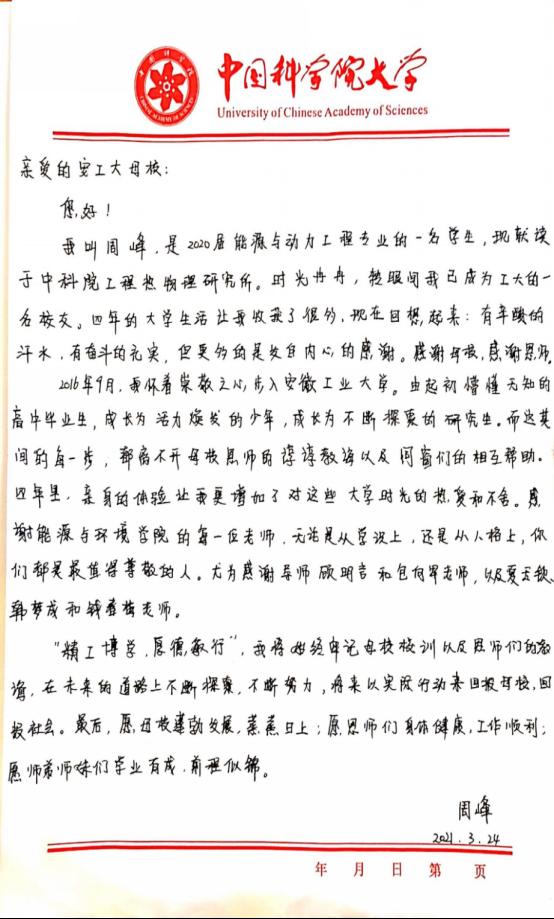 中国科学院大学
University of Chinese Academy of Sciences
亲爱的安工大母校：
您好！
我叫周峰，是2020届能源与动力工程专业的一名学生，现就读
于中科院工程热物理研究所。时光冉冉，转眼间我已成为工大的一
名校友。四年的大学生活让我收获了很多，现在回想起来：有辛酸的
汗水，有奋斗的充实，但更多的是发自内心的感谢。感谢母校，感谢恩师。
2016年9月，我怀着崇敬之心步入安徽工业大学。由起初懵懂无知的
高中毕业生，成长为活力焕发的少年，成长为不断探索的研究生。而这其
间的每一步，都离不开母校恩师的谆谆教诲以及同窗们的相互帮助。
四年里，亲身的体验让我更增加了对这些大学时光的热爱和不舍。感
谢能源与环境学院的每一位老师，无论是从学识上，还是从人格上，你
们都是最值得尊敬的人。尤为感谢导师顾明言和包向军老师，以及夏云钦
和老师。
“精工博学，厚德敏行”，我将始终牢记母校校训以及恩师们的教
诲，在未来的道路上不断探索，不断努力，将来以实际行动来回报母校，回
报社会。最后，愿母校蓬勃发展，蒸蒸日上；愿恩师们身体健康，工作顺利；
愿师弟师妹们学业有成，前程似锦。
周峰
2021.3.24
年 月 日 第 页